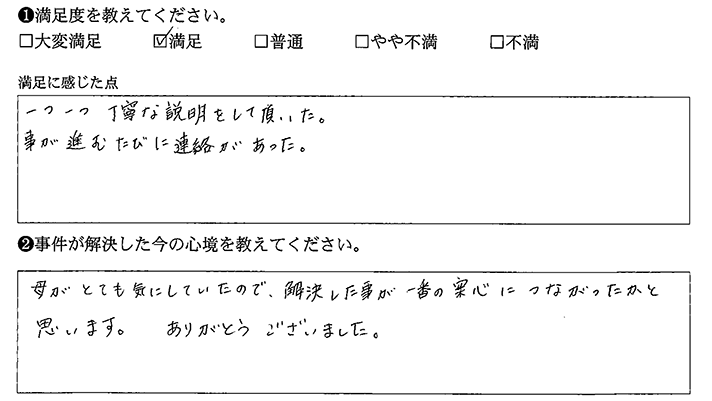 ❶満足度を教えてください。
□大変満足 ☑満足 □普通 □やや不満 □不満
満足に感じた点
一つ一つ 丁寧な説明をして頂いた。
事が進むたびに連絡があった。
❷事件が解決した今の心境を教えてください。
母がとても気にしていたので、解決した事が一番の安心につながったかと
思います。 ありがとうございました。